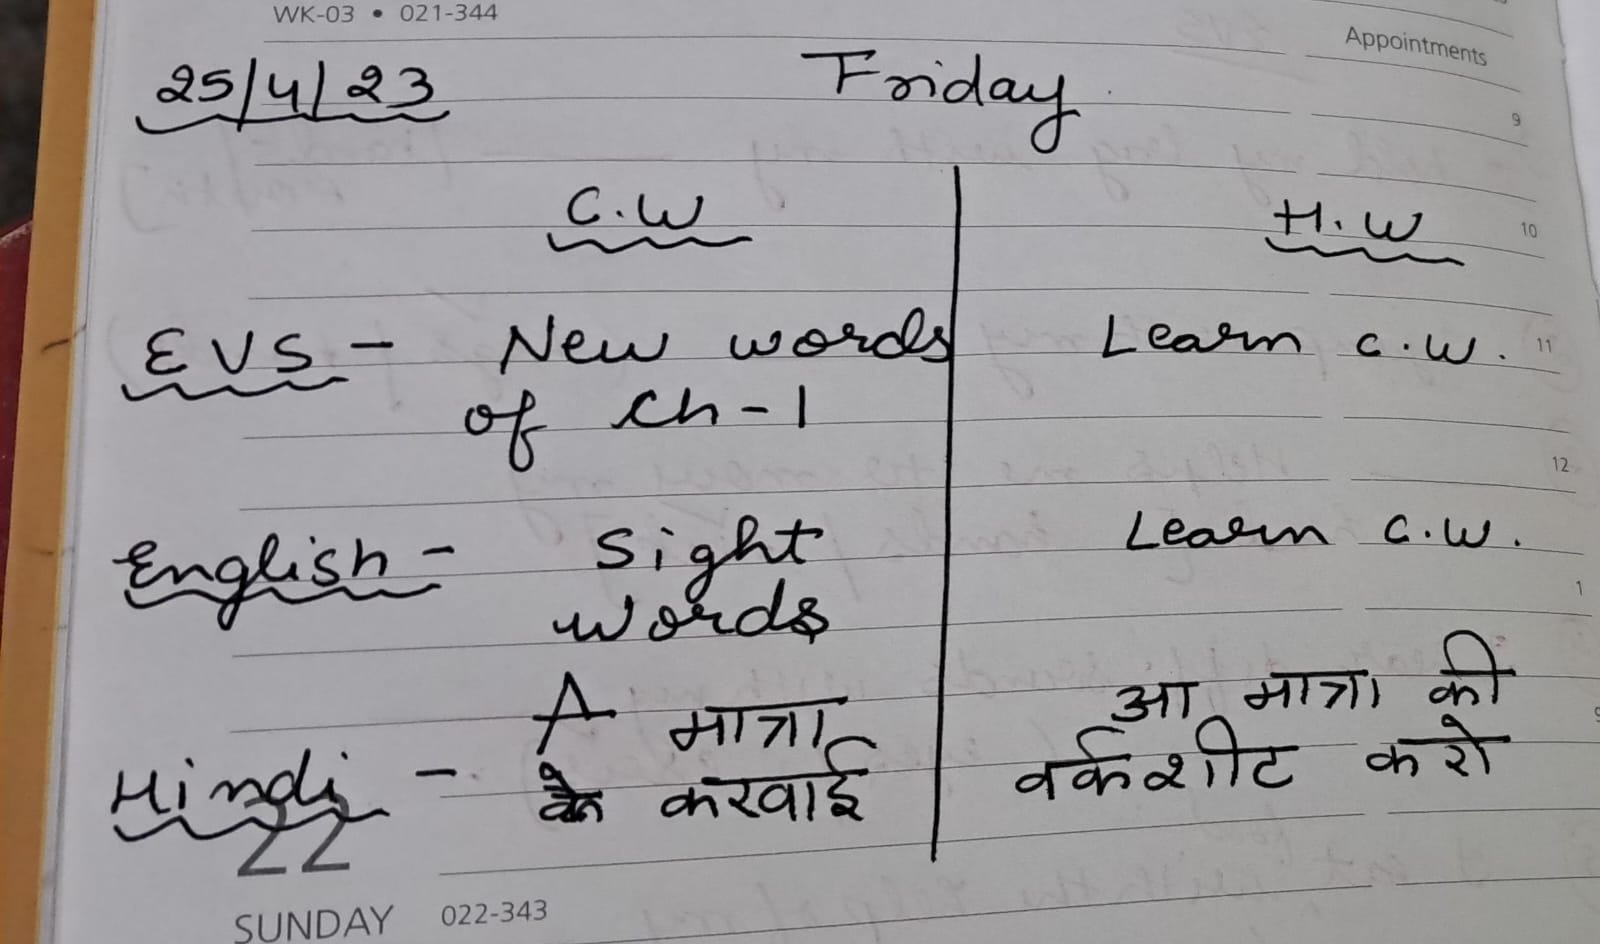 WK-03 • 021-344
Appointments
25/4/23 Friday
9
C.W H.W
10
EVS - New words Learn C.W. 11
of Ch-1
12
English - Sight Learn C.W.
words
1
A मात्रा आ मात्रा की
Hindi - करवाई वर्कशीट करो
22
SUNDAY 022-343